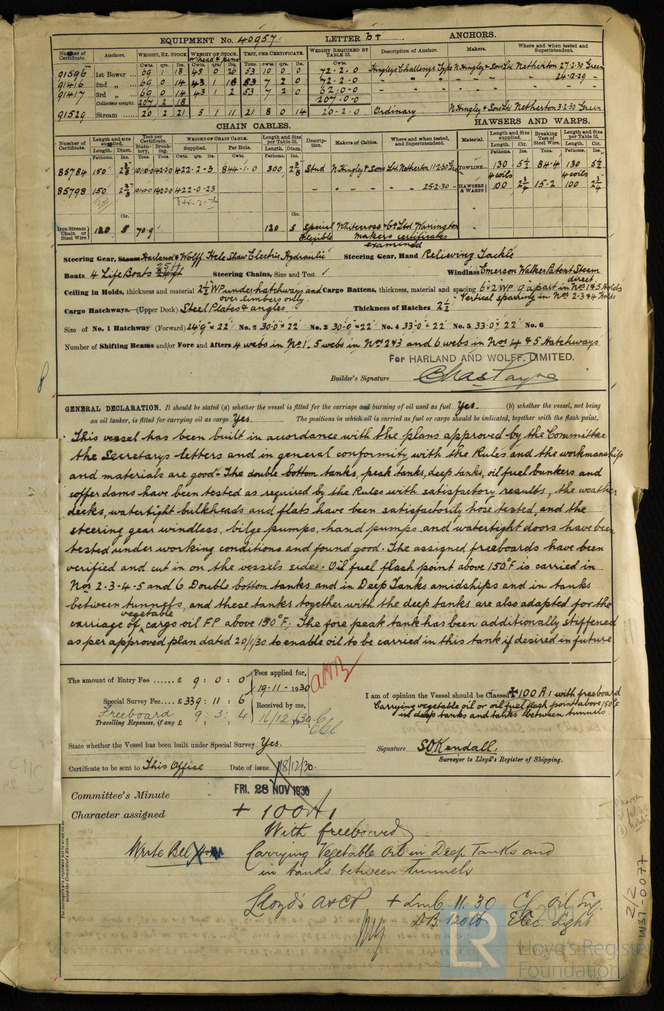 EQUIPMENT No. 40957. LETTER b+ ANCHORS.
Number of Certificate. Anchors. WEIGHT, EX. STOCK. WEIGHT OF STOCK. TEST, PER CERTIFICATE. WEIGHT REQUIRED BY TABLE 22. Description of Anchor. Makers. Where and when tested and Superintendent.
91596 1st Bower 69 1 18 45 0 26 53 10 0 0 72.2.0 Hingley's Challenge Type N. Hingley & Sons Ld Netherton 27.2.30 Green
91416 2nd 69 0 14 43 1 18 53 7 2 0 72.2.0
91417 3rd 69 0 14 43 1 2 53 7 2 0 62.0.0
Collective weight. 207 2 18 207.0.0
91520 Stream 20 2 21 5 1 11 21 8 0 14 20.2.0 Ordinary N. Hingley & Sons Ld Netherton 3.2.30 Green
CHAIN CABLES. HAWSERS AND WARPS.
85784 150 422-2-3 844-1-0 300 Stud N. Hingley & Sons Ld Netherton 11.2.30 TOWLINE 130 5½ 84.4 130 5½
85798 150 422-0-23 25.2.30 HAWSERS & WARPS 100 2¾ 15.2 100 2¾
Iron Stream Chain or Steel Wire 120 5 70.9 120 5 Special Flexible Whitecross Co Ltd Warrington
makers certificates examined
Steering Gear, Steam Harland & Wolff Hele Shaw Electric Hydraulic Steering Gear, Hand Relieving Tackle
Boats 4 Life Boats Steering Chains, Size and Test Windlass Emerson Walker Patent Steam direct
Ceiling in Holds, thickness and material 2½ WP under hatchways and over limbers only Cargo Battens, thickness, material and spacing 6 × 2 WP 9 apart in Nos 1 & 5 Holds
Vertical sparring in Nos 2-3 & 4 Holds
Cargo Hatchways. (Upper Deck) Steel Plates & angles Thickness of Hatches 2½
Size of No. 1 Hatchway (Forward) 24'.9" × 22' No. 2 30.0 × 22' No. 3 30.0 × 22' No. 4 33.0 × 22' No. 5 33.0 × 22' No. 6
Number of Shifting Beams and/or Fore and Afters 4 webs in No 1. 5 webs in Nos 2 & 3 and 6 webs in Nos 4 & 5 Hatchways
For HARLAND AND WOLFF, LIMITED.
Builder's Signature Chas Payne
GENERAL DECLARATION. It should be stated (a) whether the vessel is fitted for the carriage and burning of oil used as fuel Yes. (b) whether the vessel, not being
an oil tanker, is fitted for carrying oil as cargo Yes. The positions in which oil is carried as fuel or cargo should be indicated, together with the flash point.
This vessel has been built in accordance with the plans approved by the Committee
the Secretarys letters and in general conformity with the Rules and the workmanship
and materials are good. The double bottom tanks, peak tanks, deep tanks, oil fuel bunkers and
cofferdams have been tested as required by the Rules with satisfactory results, the weather
decks, watertight bulkheads and flats have been satisfactorily hose tested, and the
steering gear windlass, bilge pumps, hand pumps and watertight doors have been
tested under working conditions and found good. The assigned freeboards have been
verified and cut in on the vessels sides. Oil fuel flash point above 150°F is carried in
Nos 2-3-4-5 and 6 Double bottom tanks and in Deep Tanks amidships and in tanks
between tunnels, and these tanks together with the deep tanks are also adapted for the
carriage of vegetable cargo oil FP above 150°F. The fore peak tank has been additionally stiffened
as per approved plan dated 20/1/30 to enable oil to be carried in this tank if desired in future
The amount of Entry Fee £ 9 : 0 : 0 Fees applied for,
19-11-1930
Special Survey Fee £ 339 : 11 : 6 Received by me,
Freeboard 9 : 5 : 4 16/12/1930
Travelling Expenses, if any £
I am of opinion the Vessel should be Classed ✠ 100A1 with freeboard
Carrying vegetable oil or oil fuel flash point above 150°F
in deep tanks and tanks between tunnels
State whether the Vessel has been built under Special Survey Yes.
Signature S O Kendall.
Surveyor to Lloyd's Register of Shipping.
Certificate to be sent to This Office Date of issue 18/12/30
Committee's Minute FRI. 28 NOV 1930
Character assigned + 100A1
With freeboard
Write Bel.
Carrying Vegetable Oil in Deep Tanks and
in tanks between Tunnels
Lloyd's A & CP + LMC 11.30 C/ Oil Eng.
DB 120 lb Elec. Light
2/2
W37-0077
LR
Lloyd's Register
Foundation